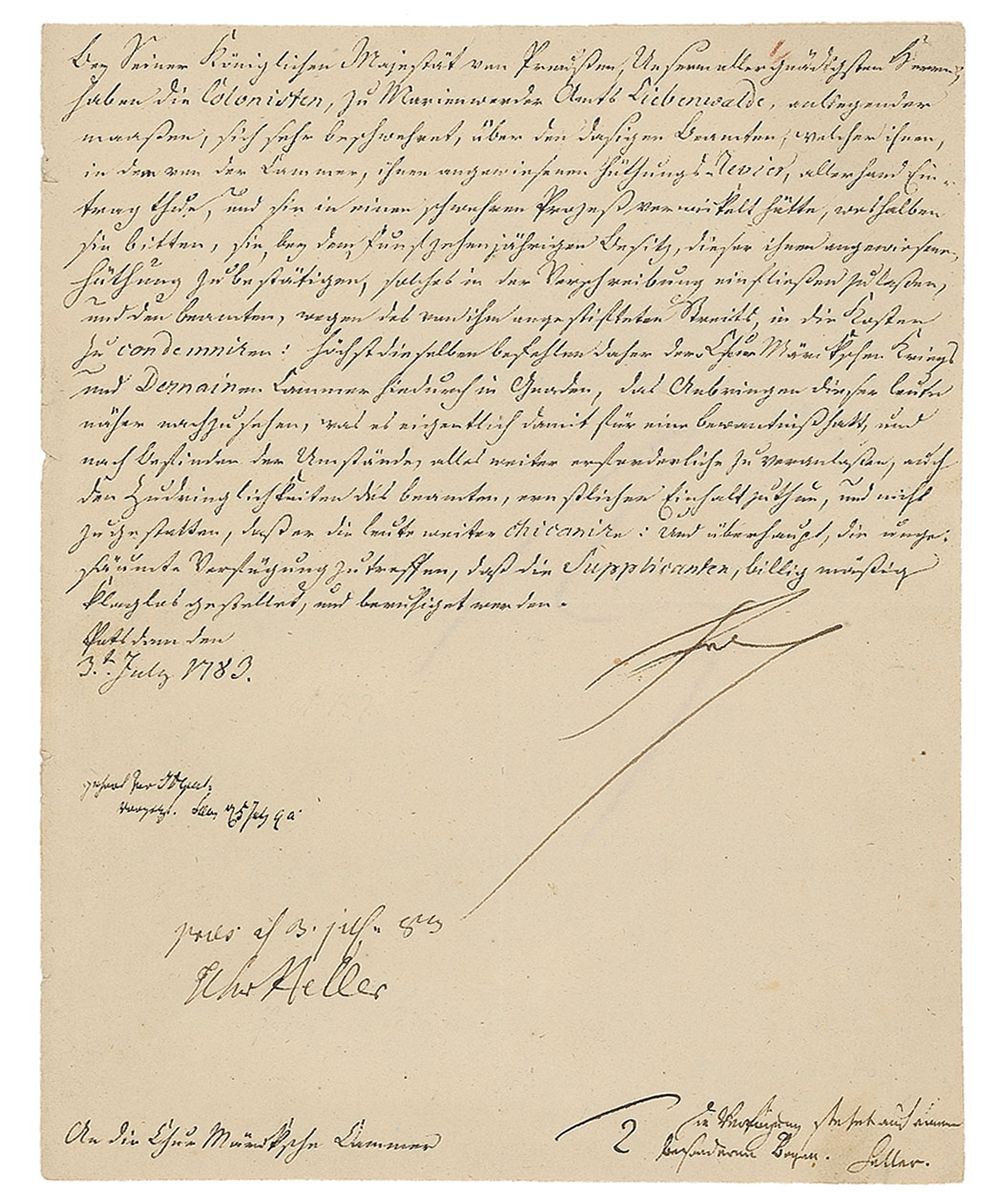 Bey Seiner Königlichen Majestät von Preußen, Unserm allergnädigsten Herrn,
haben die Colonisten, zu Marienwerder Amts Liebenwalde, anliegender
maaßen, sich sehr beschwehret, über den dasigen Beamten, welcher ihnen,
in dem von der Cammer, ihnen angewiesenen Hüthungs-Revier, allerhand Ein-
trag thue, und sie in einen schwehren Prozeß verwickelt hätte, weshalben
sie bitten, sie, bey dem Funfzehenjährigen Besitz, dieser ihnen angewiesenen
Hüthung zu bestätigen, solches in der Verschreibung einfließen zu laßen,
und den beamten, wegen des von ihm angestifteten Streits, in die Kosten
zu condemniren: Höchstdieselben befehlen daher dero Chur Märckschen Kriegs
und Domainen Cammer hiedurch in Gnaden, das Anbringen dieser leute
näher nachzusehen, was es eigentlich damit für eine bewantniß hatt, und
nach Befinden der Umstände, alles weiter erforderliche zu veranlaßen, auch
den Zudringlichkeiten des beamten, ernstlichen Einhalt zu thun, und nicht
zu gestatten, daß er die leute weiter chicanire: Und überhaupt, die unge-
säumte Verfügung zu treffen, daß die Supplicanten, billig mäßig
klaglos gestellet, und beruhiget werden.
Potsdam den
3.t July 1783.
Fch
gehört zur
July
83
Uhr Heller
An die Chur Märcksche Cammer
2
Die Verfügung stehet auf einem
besonderen Bogen. Heller.